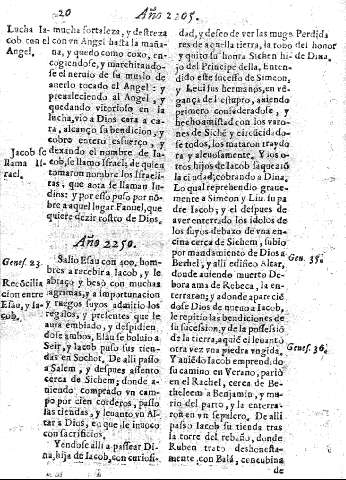 20
Año 2205.
Lucha Ia-
cob con el
Angel.
mucha fortaleza, y destreza
con vn Angel hasta la maña-
na, y quedo como coxo, en-
cogiendose, y marchitando-
se el neruio de su muslo de
auerlo tocado el Angel: y
preualeciendo al Angel, y
quedando vitorioso en la
lucha, vio a Dios cara a ca-
ra, alcanço su bendicion, y
cobro entero esfuerço, y
Jacob se
llama Is-
rael.
dexando el nombre de Ia-
cob, se llamo Israel; de quien
tomaron nombre los Israeli-
tas, que aora se llaman Iu-
dios: y por esso puso por nõ-
bre a aquel lugar Fanuel, que
quiere dezir rostro de Dios.
Año 2250.
Genes. 23.
Recõcilia
cion entre
Esau, y Ia-
cob.
Salio Esau con 400. hom-
bres a recebir a Iacob, y le
abraço y besò con muchas
lagrimas, y a importunacion
y ruegos suyos admitio los
regalos, y presentes que le
auia embiado, y despidien-
dose ambos, Esau se boluio a
Seir, y Iacob puso sus tien-
das en Sochot. De alli passò
a Salem, y despues assento
cerca de Sichem; donde a-
uiendo comprado vn cam-
po por cien corderos, passò
las tiendas, y leuanto vn Al-
tar a Dios, en que le inuoco
con sacrificios.
Yendose alli a passear Di-
na, hija de Iacob, con curiosi-
dad, y deseo de ver las muge
res de aquella tierra, la robo
y quito su honra Sichen hi-
jo del Principe della. Enten-
dido este sucesso de Simeon,
y Leui sus hermanos, en vẽ-
gança del estupro, auiendo
primero confederadose, y
hecho amistad con los varo-
nes de Siché y circūcidado-
se todos, los mataron traydo
ra y aleuosamente. Y los o-
tros hijos de Iacob saquearõ
la ciudad, cobrando a Dina.
Lo qual reprehendio graue-
mente a Simeon y Liu. su pa
dre Iacob; y el despues de
auer enterrado los idolos de
los suyos debaxo de vna en-
cina cerca de Sichem, subio
por mandamiento de Dios a
Bethel, y alli edifico Altar,
donde auiendo muerto De-
bora ama de Rebeca, la en-
terraron; y adonde aparecie
dose Dios de nueuo a Iacob,
le repitio las bendiciones de
su sucession, y de la possessiõ
de la tierra, aqui el leuantò
otra vez vna piedra vngida.
Y auiẽdo Iacob emprendido
su camino en Verano, pariò
en el Rachel, cerca de Be-
thleem a Benjamin, y mu-
rio del parto, y la enterra-
ron en vn sepulcro. De alli
passò Iacob su tienda tras
la torre del rebaño, donde
Ruben trato deshonesta-
mente con Balá, concubina
de
Perdida
del honor
de Dina.
Gen. 35.
Genes. 36.